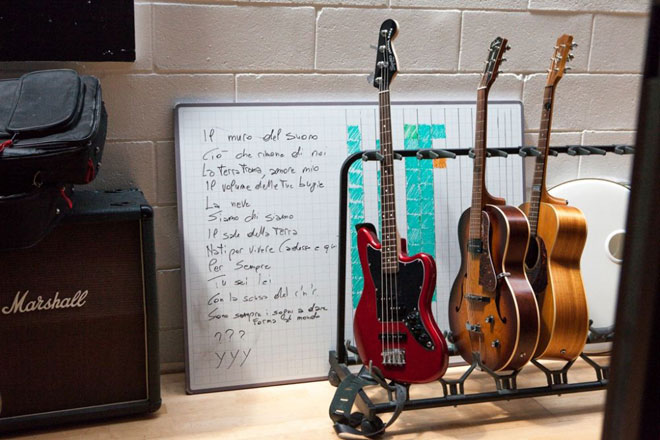 Il muro del suono
Ciò che rimane di noi
La terra trema, amore mio
Il volume delle tue bugie
La neve
Siamo chi siamo
Il sale della terra
Nati per vivere (adesso e qui
Per Sempre
Tu sei lei
Con la scusa del r'n'r
Sono sempre i sogni a dare
forma al mondo
???
YYY
Marshall